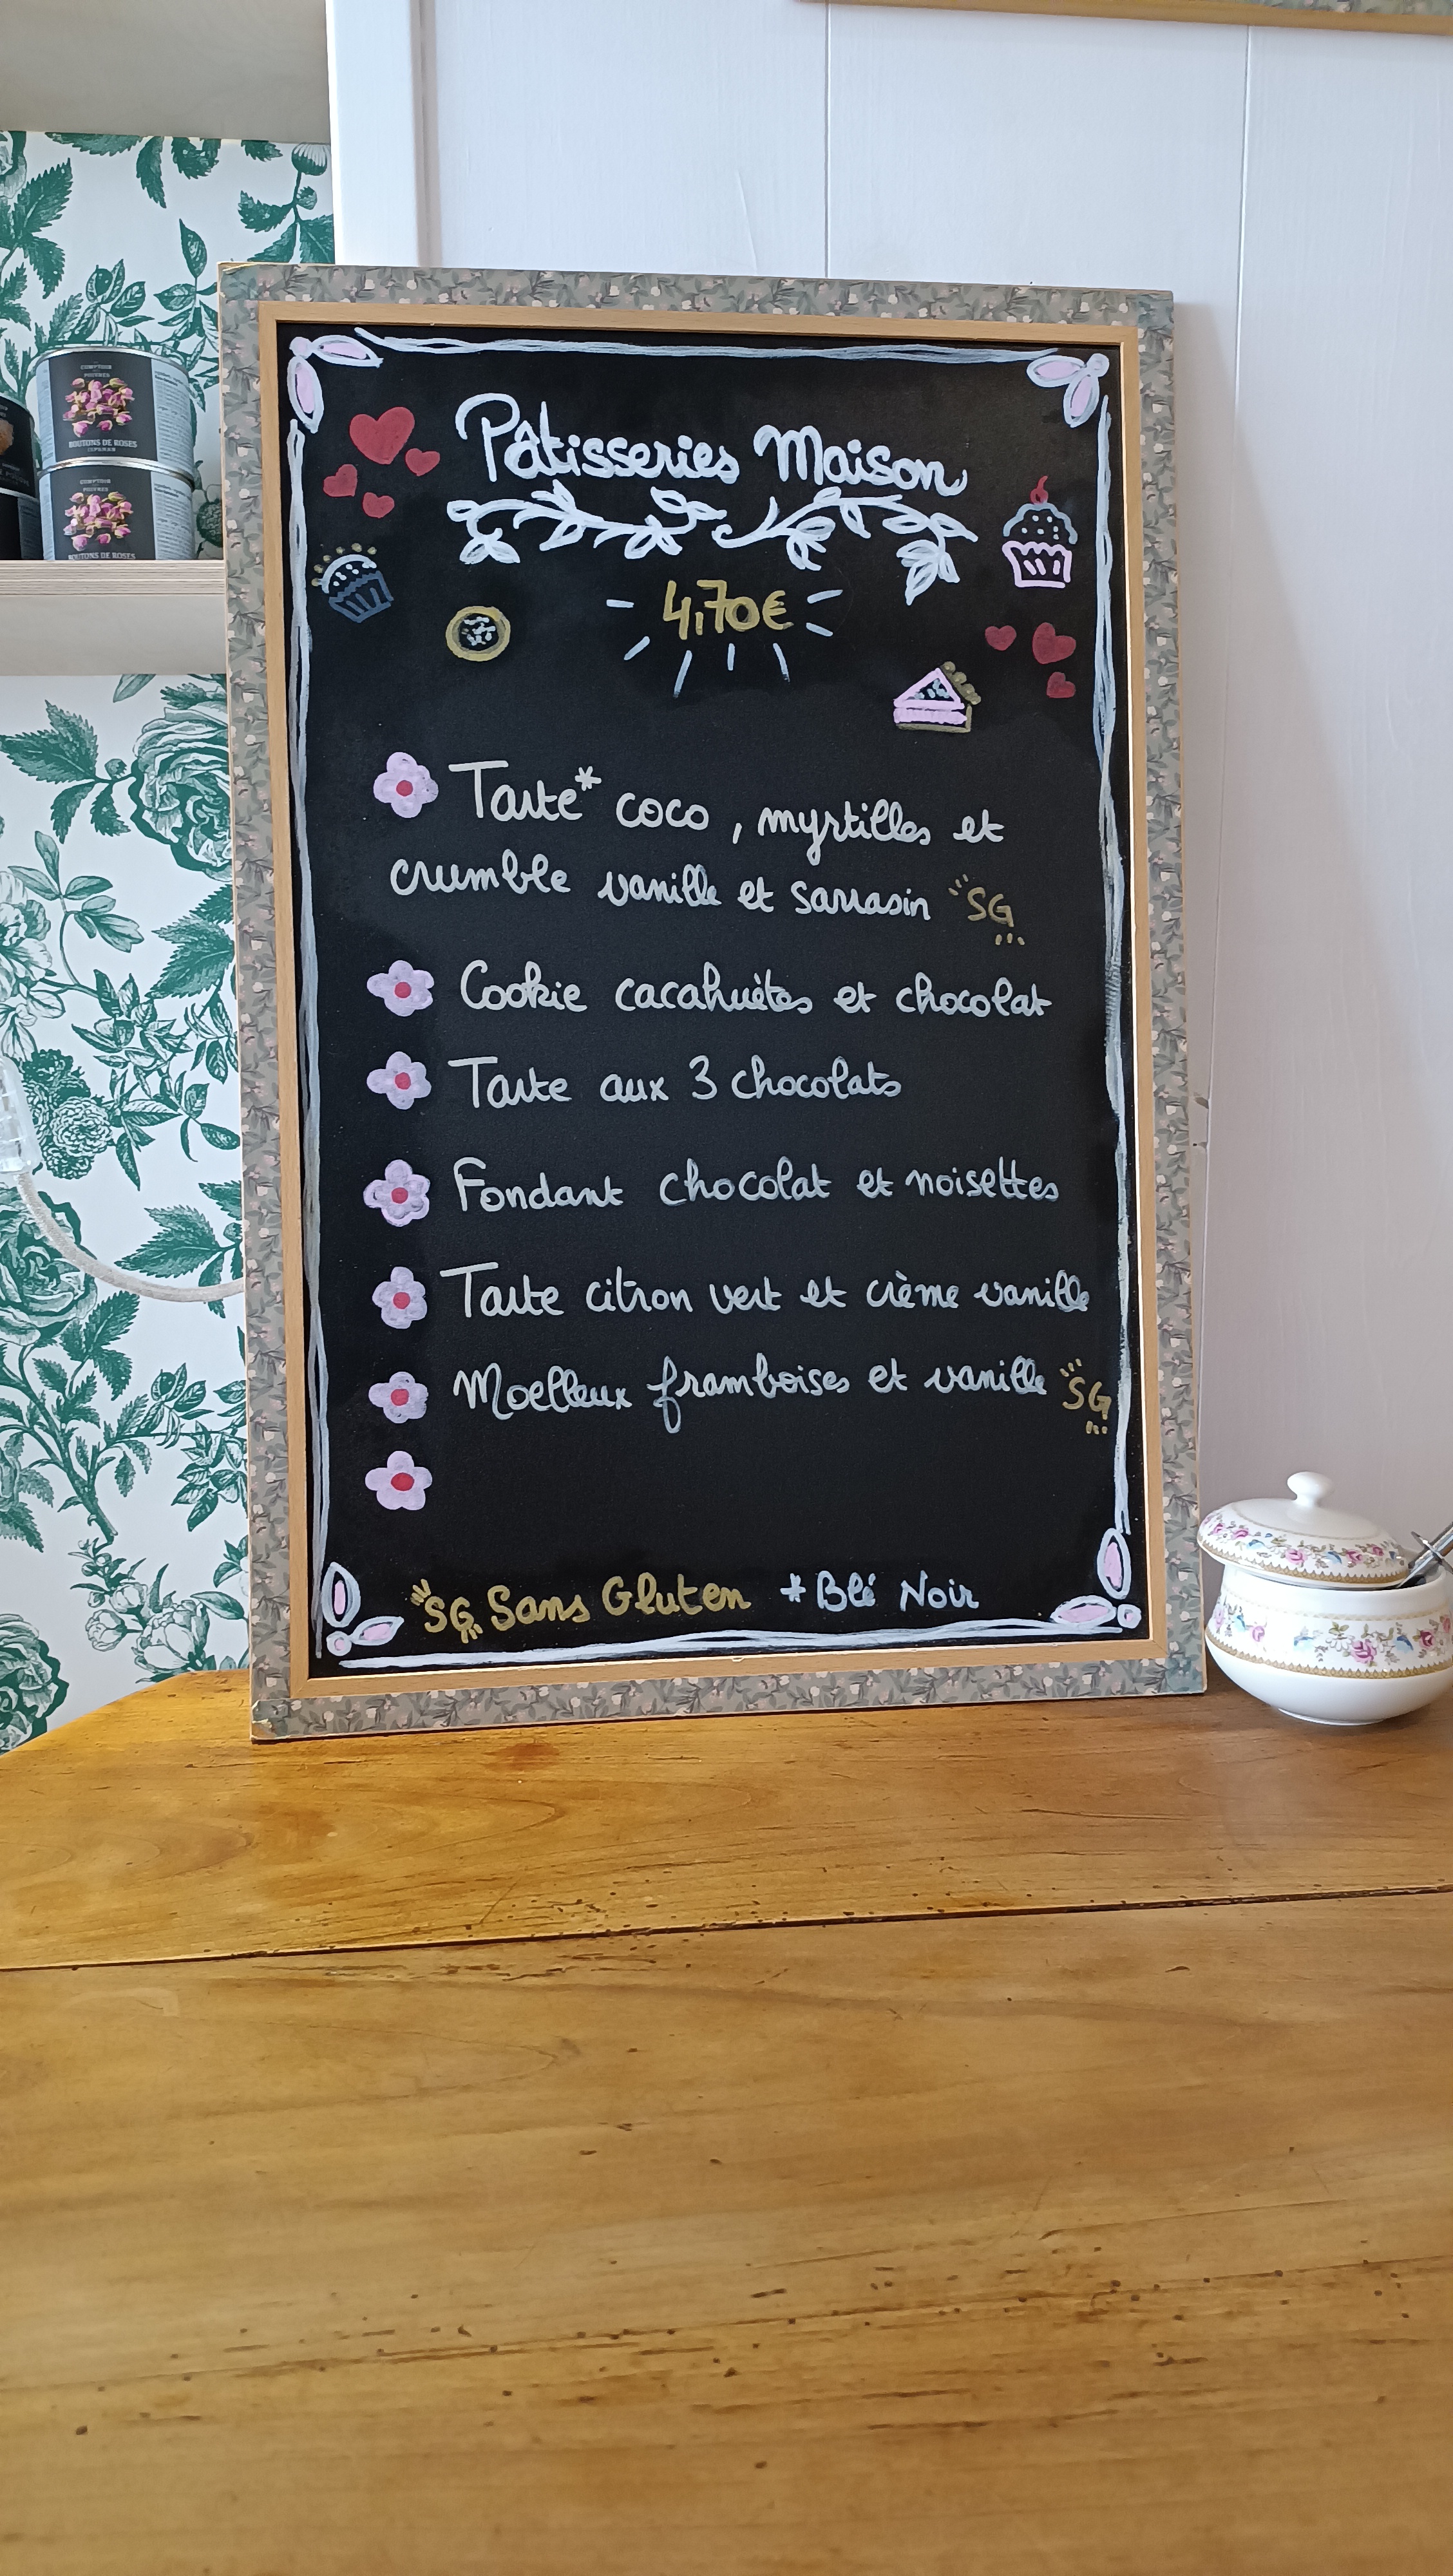 Pâtisseries Maison
4,70€
Tarte* coco, myrtilles et
crumble vanille et sarrasin SG
Cookie cacahuètes et chocolat
Tarte aux 3 chocolats
Fondant chocolat et noisettes
Tarte citron vert et crème vanille
Moelleux framboises et vanille SG
SG Sans Gluten *Blé Noir
COMPTOIR
POIVRES
BOUTONS DE ROSES
COMPTOIR
POIVRES
BOUTONS DE ROSES